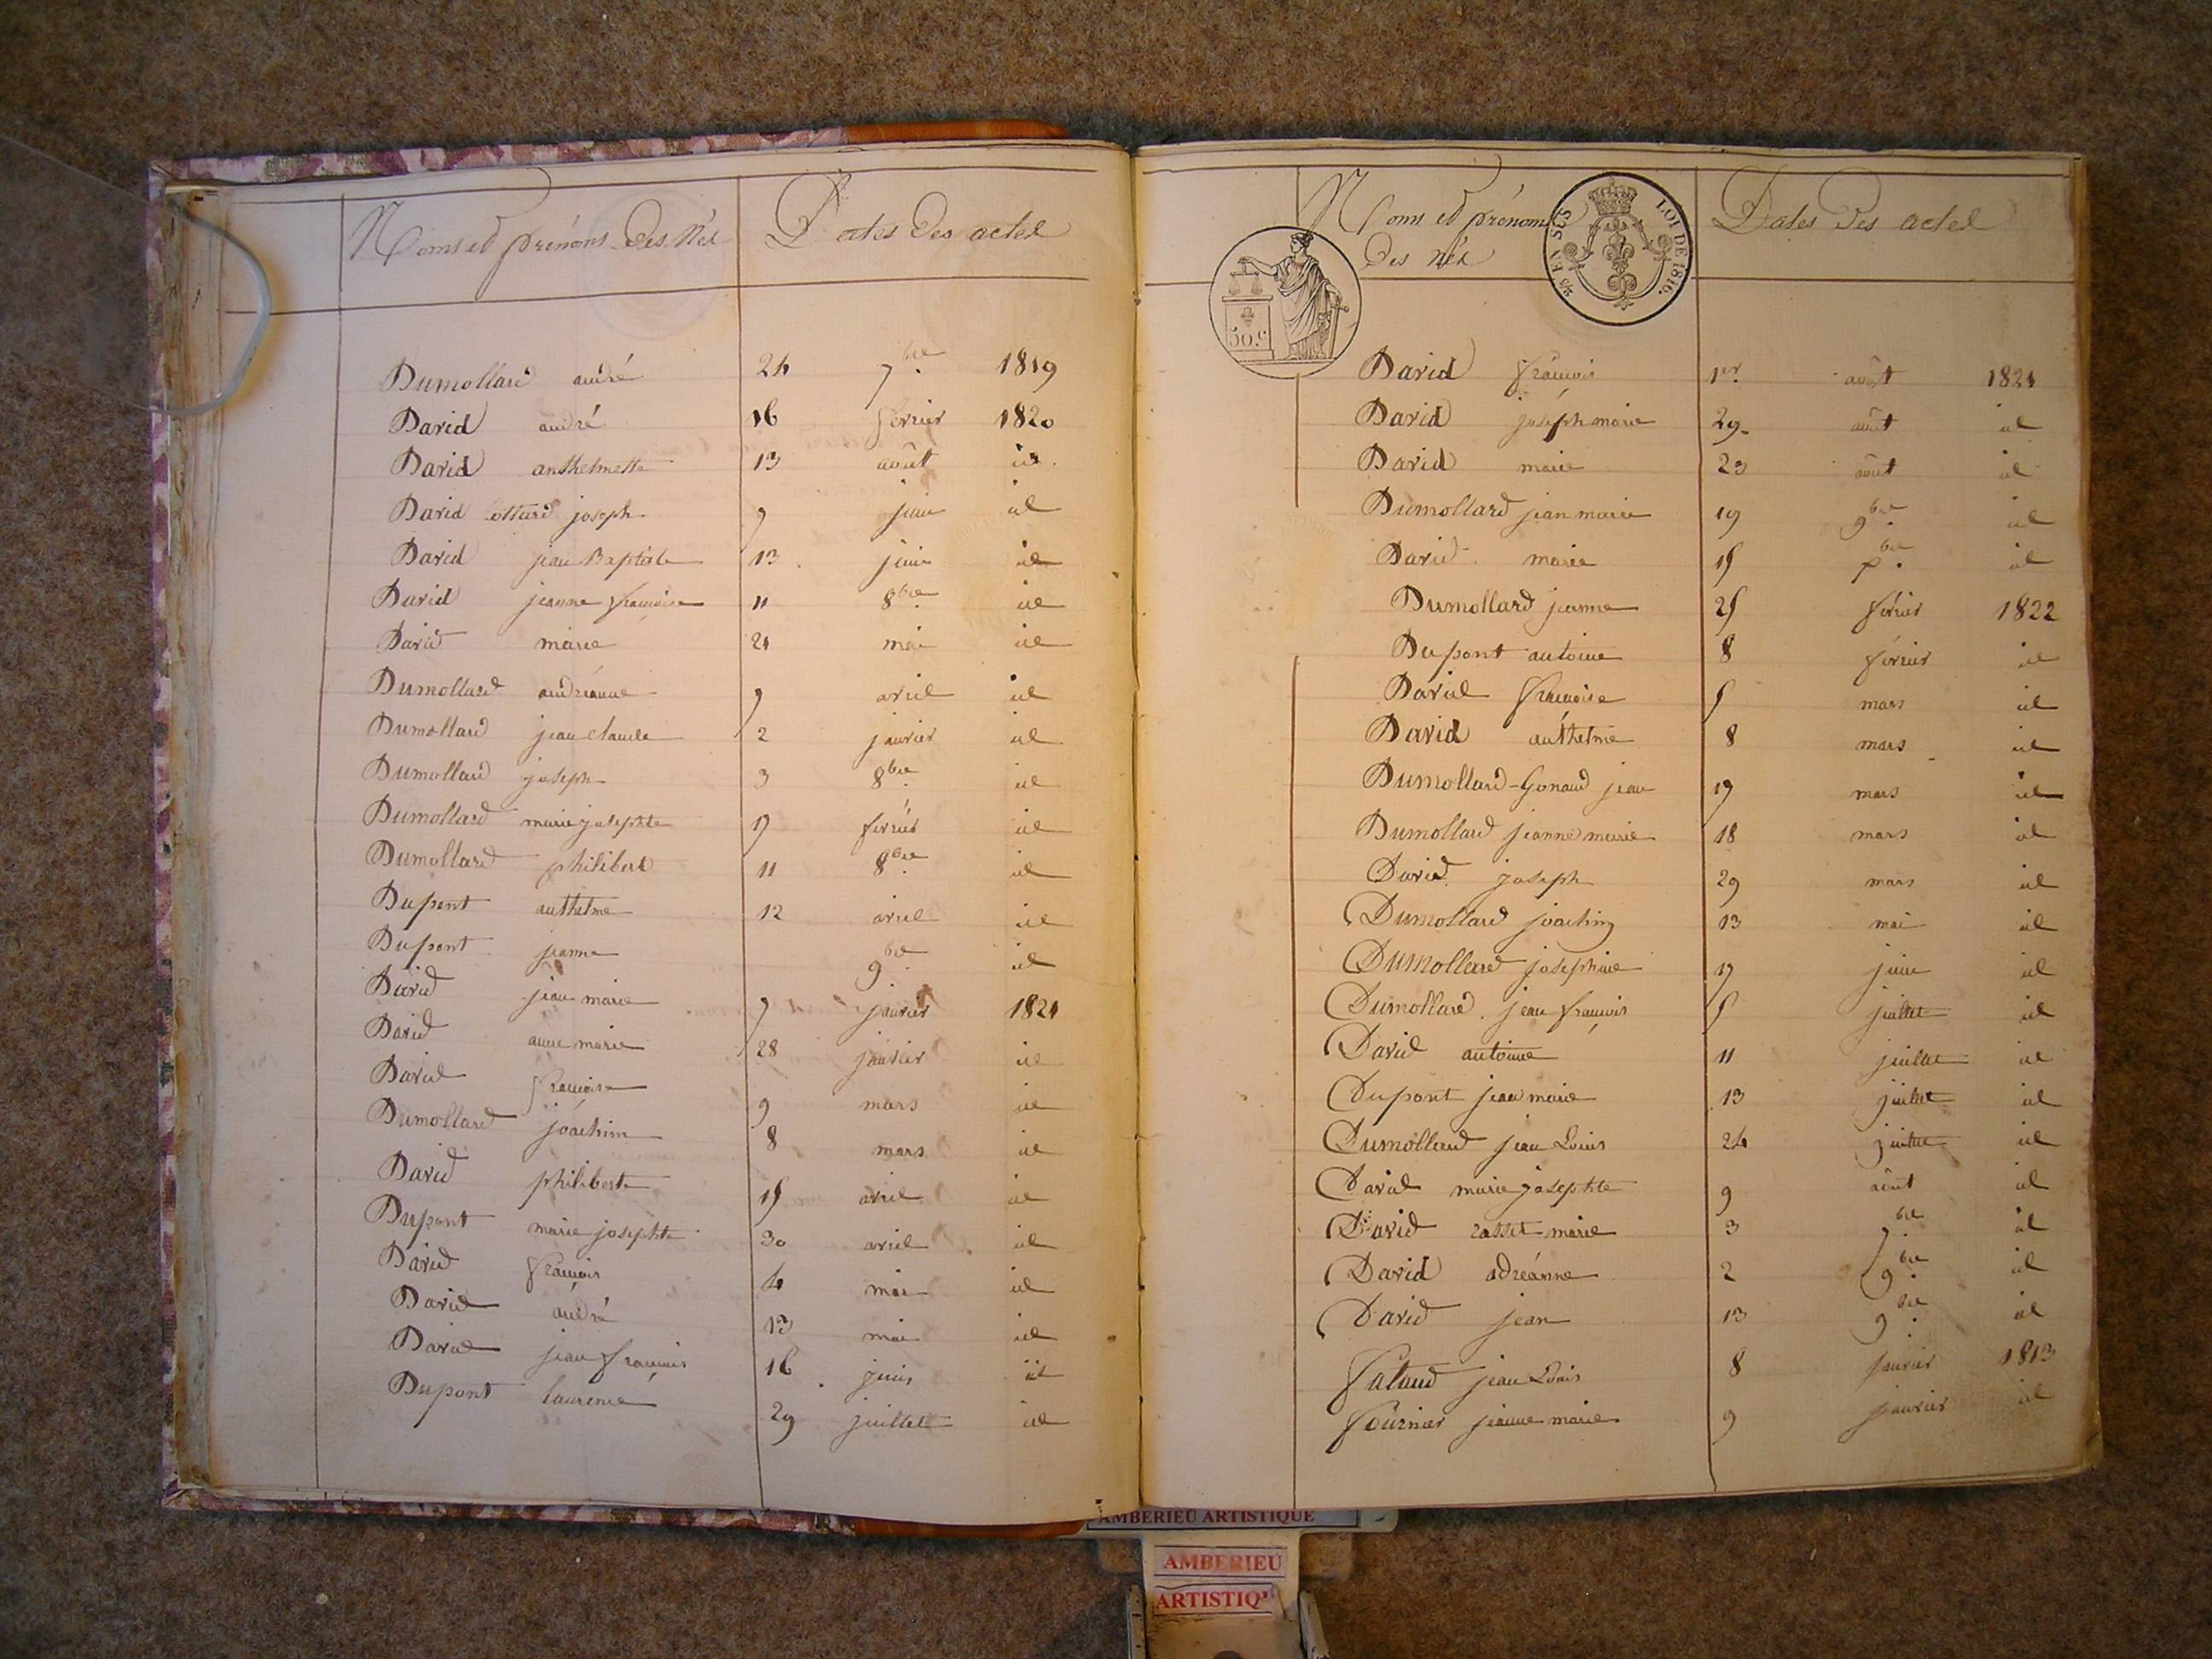 Noms et prénoms des nés Dates des actes
Dumollard andré 24 7bre 1819
David andré 16 février 1820
David anthelmette 13 août id.
David Cottard joseph 9 juin id
David jean Baptiste 13 juin id
David jeanne françoise 11 8bre id
David marie 21 mai id
Dumollard andréanne 9 avril id
Dumollard jean claude 2 janvier id
Dumollard joseph 3 8bre id
Dumollard marie josephte 17 février id
Dumollard philibert 11 8bre id
Dupont anthelme 12 avril id
Dupont jeanne 9bre id
David jean marie 7 janvier 1821
David anne marie 28 janvier id
David françoise 9 mars id
Dumollard joachim 8 mars id
David philiberte 15 avril id
Dupont marie josephte 30 avril id
David françois 4 mai id
David andré 13 mai id
David jean françois 16 juin id
Dupont laurence 29 juillet id
Noms et prénoms Dates des actes
des nés
5/5 EN SUS
LOI DE 1816.
50.c
David françois 1er août 1821
David joseph marie 29 août id
David marie 23 août id
Dumollard jean marie 19 9bre id
David marie 15 bre id
Dumollard jeanne 25 février 1822
Dupont antoine 8 février id
David françoise 5 mars id
David anthelme 8 mars id
Dumollard-Gonaud jean 17 mars id
Dumollard jeanne marie 18 mars id
David joseph 29 mars id
Dumollard joachim 13 mai id
Dumollard josephine 17 juin id
Dumollard jean françois 5 juillet id
David antoine 11 juillet id
Dupont jean marie 13 juillet id
Dumollard jean Louis 24 juillet id
David marie josephte 9 août id
David rasset marie 3 7bre id
David adréanne 2 9bre id
David jean 13 9bre id
Falaud jean Louis 8 janvier 1813
fournier jeanne marie 9 janvier id
AMBERIEU ARTISTIQUE
AMBERIEU
ARTISTIQ